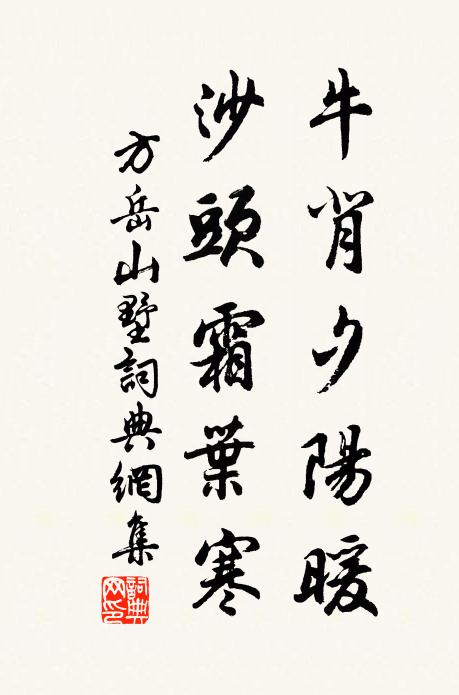 牛背夕陽暖
沙頭霜葉寒
方岳山墅詞典網集
詞典网印